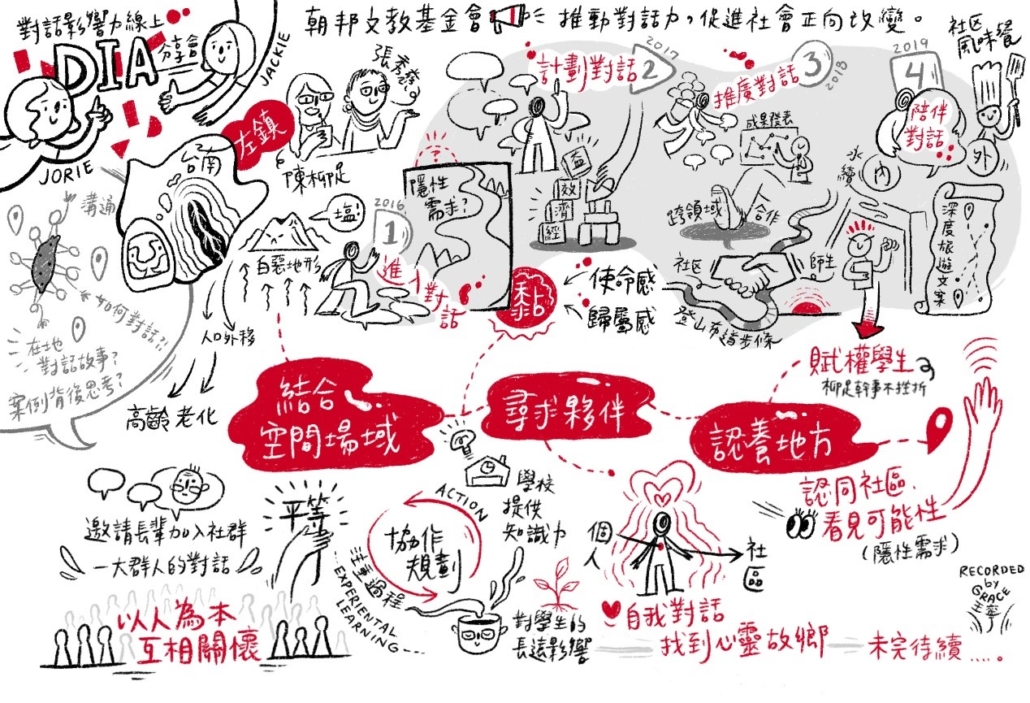 對話影響力線上
DIA
分享會
JACKIE
JORIE
朝邦文教基金會
推動對話力，促進社會正向改變。
左鎮
台南
陳柳足
溝通
如何對話?!
在地
對話故事?
案例背後思考?
白惡地形
塩!
人口外移
高齡老化
2016
1
進入對話
隱性
需求?
2017
計劃對話 2
益
效
濟
經
2018
推廣對話 3
成果發表
跨領域 合作
社區
師生
登山古道步條
2019
4
陪伴
對話
社區
風味餐
永續
內
外
深度旅遊文案
黏
使命感
歸屬感
賦權學生
柳足幹事不挫折
結合
空間場域
尋求夥伴
認養地方
邀請長輩加入社群
一大群人的對話
以人為本
互相關懷
平等
ACTION
協作
規劃
注重過程
EXPERIENTIAL
LEARNING
學校
提供
知識力
對學生的
長遠影響
個人
社區
自我對話
找到心靈故鄉
未完待續.....。
認同社區、
看見可能性
(隱性需求)
RECORDED
by
GRACE